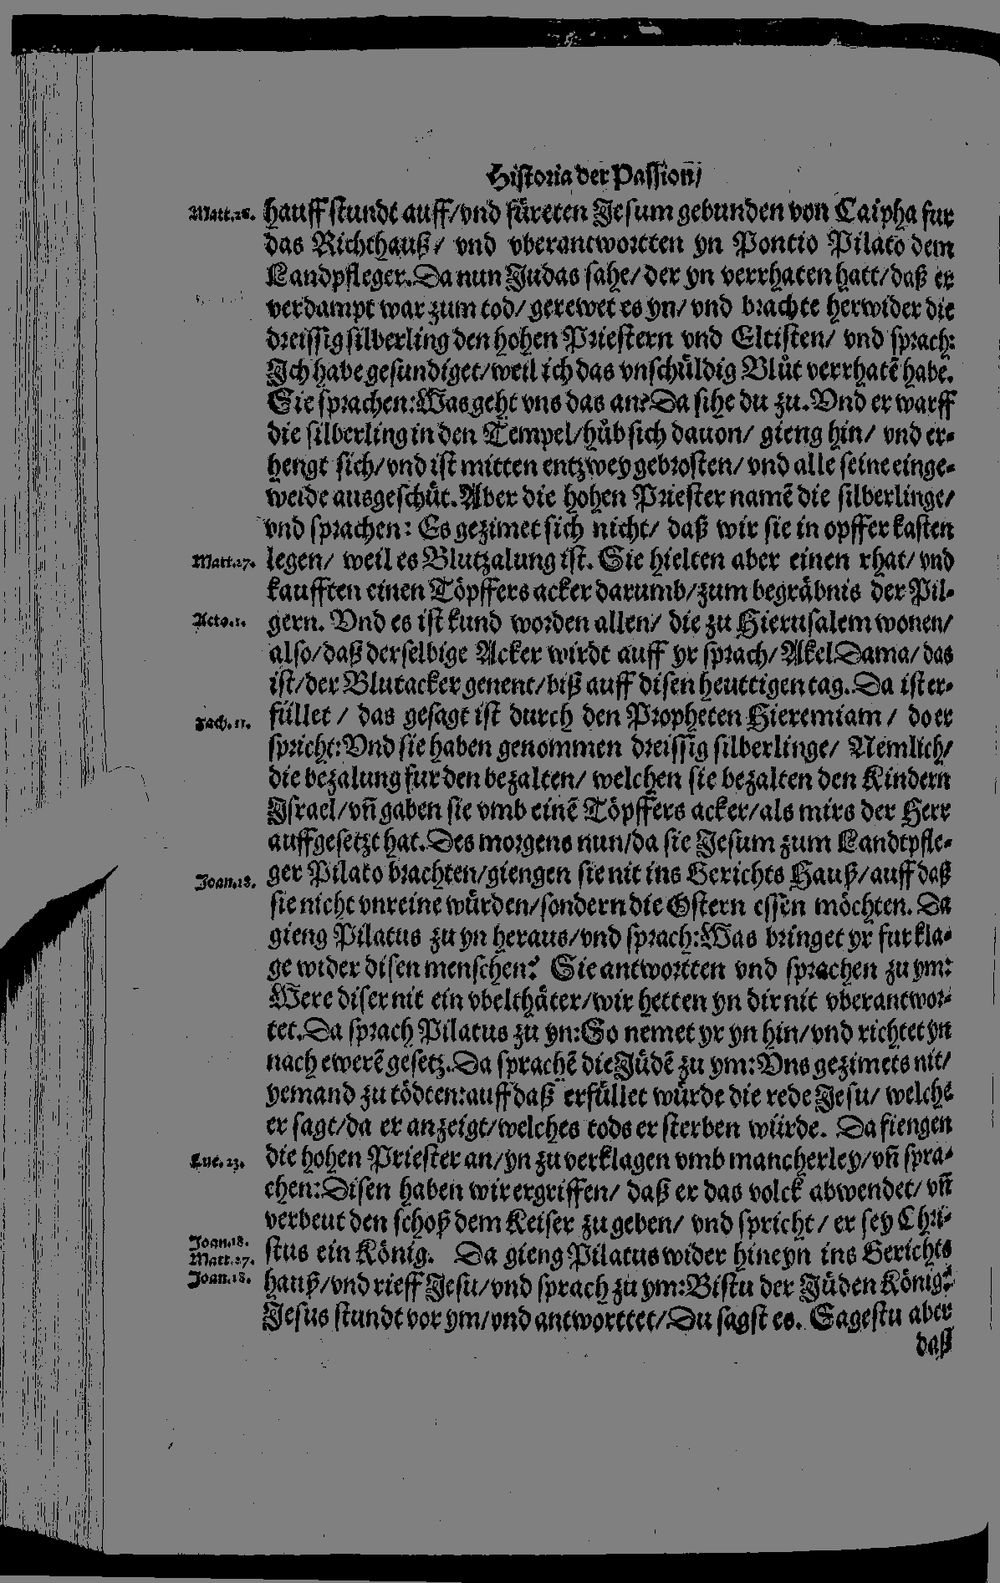 Historia der Passion̄/
Matt.26. hauff stundt auff/vnd füreten Jesum gebunden von Caipha fur
das Richthauß/ vnd vberantwortten yn Pontio Pilato dem
Landpfleger. Da nun Judas sahe/ der yn verrhaten hatt/ daß er
verdampt war zum tod/ gerewet es yn/ vnd brachte herwider die
dreissig silberling den hohen Priestern vnd Eltisten/ vnd sprach:
Ich habe gesundiget/weil ich das vnschüldig Blůt verrhatē habe.
Sie sprachen: Was geht vns das an? Da sihe du zu. Vnd er warff
die silberling in den Tempel/ hůb sich dauon/ gieng hin/ vnd er-
hengt sich/ vnd ist mitten entzwey gebrosten/ vnd alle seine einge-
weide ausgeschüt. Aber die hohen Priester namē die silberlinge/
vnd sprachen: Es gezimet sich nicht/ daß wir sie in opffer kasten
Matt.27. legen/ weil es Blutzalung ist. Sie hielten aber einen rhat/ vnd
kaufften einen Töpffers acker darumb/ zum begräbnis der Pil-
Acto.1. gern. Vnd es ist kund worden allen/ die zu Hierusalem wonen/
also/ daß derselbige Acker wirdt auff yr sprach/ Akel Dama/ das
ist/ der Blutacker genent/ biß auff disen heuttigen tag. Da ist er-
Zach.11. füllet / das gesagt ist durch den Propheten Hieremiam / do er
spricht: Vnd sie haben genommen dreissig silberlinge/ Nemlich/
die bezalung fur den bezalten/ welchen sie bezalten den Kindern
Jsrael/ vn̄ gaben sie vmb einē Töpffers acker/ als mirs der Herr
auffgesetzt hat. Des morgens nun/ da sie Jesum zum Landtpfle-
Joan.18. ger Pilato brachten/ giengen sie nit ins Gerichts Hauß/ auff daß
sie nicht vnreine würden/ sondern die Ostern essen möchten. Da
gieng Pilatus zu yn heraus/ vnd sprach: Was bringet yr fur kla-
ge wider disen menschen? Sie antwortten vnd sprachen zu ym:
Were diser nit ein vbelthäter/ wir hetten yn dir nit vberantwor-
tet. Da sprach Pilatus zu yn: So nemet yr yn hin/ vnd richtet yn
nach ewerē gesetz. Da sprachē die Jüdē zu ym: Vns gezimets nit/
yemand zu tödten: auff daß erfüllet würde die rede Jesu/ welche
er sagt/ da er anzeigt/ welches tods er sterben würde. Da fiengen
Luc.23. die hohen Priester an/ yn zu verklagen vmb mancherley/ vn̄ spra-
chen: Disen haben wir ergriffen/ daß er das volck abwendet/ vn̄
verbeut den schoß dem Keiser zu geben/ vnd spricht / er sey Chri-
Joan.18.
Matt.27. stus ein König. Da gieng Pilatus wider hineyn ins Gerichts
Joan.18. hauß/ vnd rieff Jesu/ vnd sprach zu ym: Bistu der Jüden König?
Jesus stundt vor ym/ vnd antworttet/ Du sagst es. Sagestu aber
daß